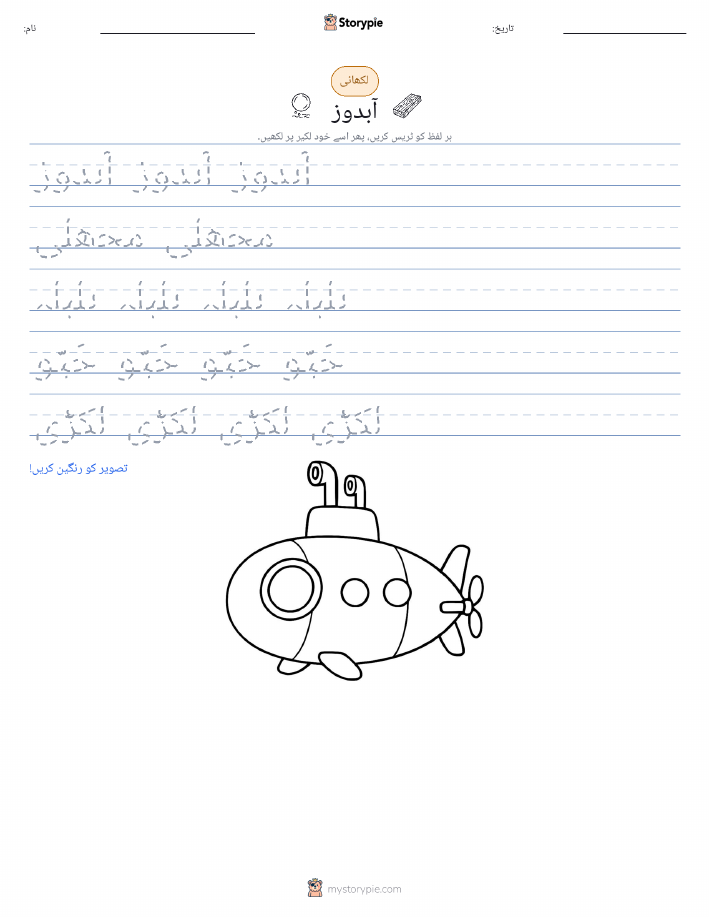 Storypie
نام:
تاریخ:
لکھائی
آبدوز
ہر لفظ کو ٹریس کریں، پھر اسے خود لکیر پر لکھیں۔
آبدوز آبدوز آبدوز
مچھلی مچھلی
بلبلہ بلبلہ بلبلہ بلبلہ
چپو چپو چپو چپو
لکڑی لکڑی لکڑی لکڑی
تصویر کو رنگین کریں!
mystorypie.com